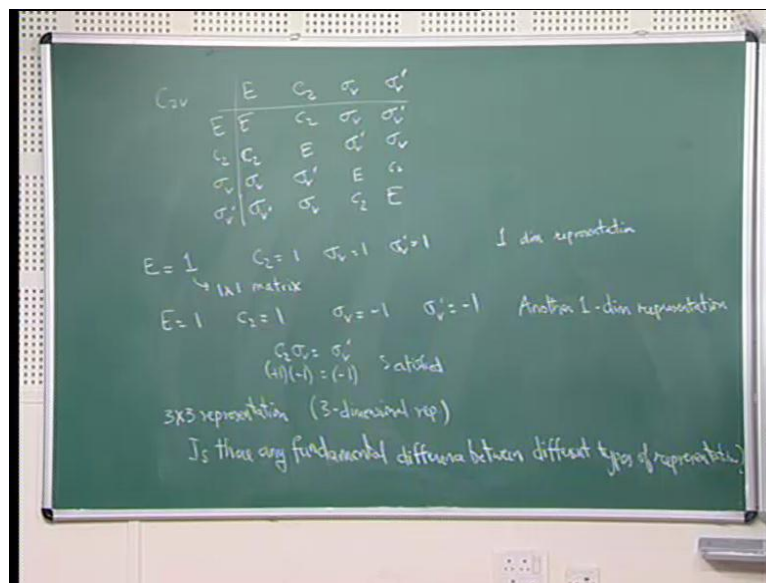 C₂ᵥ E C₂ σᵥ σᵥ'
E E C₂ σᵥ σᵥ'
C₂ C₂ E σᵥ' σᵥ
σᵥ σᵥ σᵥ' E C₂
σᵥ' σᵥ' σᵥ C₂ E
E = 1 C₂ = 1 σᵥ = 1 σᵥ' = 1 1 dim representation
↳ 1x1 matrix
E = 1 C₂ = 1 σᵥ = -1 σᵥ' = -1 Another 1-dim representation
C₂σᵥ = σᵥ'
(+1)(-1) = (-1) satisfied
3x3 representation (3-dimensional rep.)
Is there any fundamental difference between different types of representation?